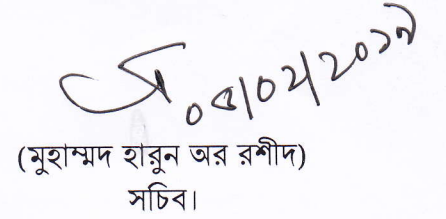 ০৫/০২/২০১৯
(মুহাম্মদ হারুন অর রশীদ)
সচিব।